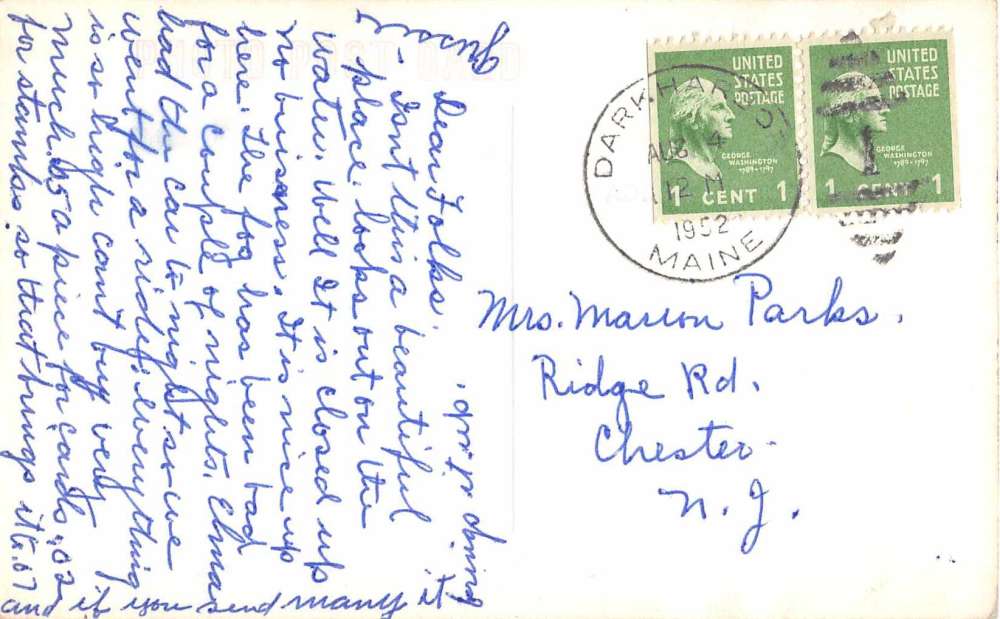 PHOTO POST CARD
Dear Folks.
- Isnt this a beautiful
place. looks out on the
water. Well It is closed up
no business. It is nice up
here. The fog has been bad
for a couple of nights. Elmer
had the car to night so we
went for a ride. everything
is so high cant buy very
much. .05 a piece for cards. .02
for stamps so that brings it to .07
and if you send many it
DARK HAR
AUG 4
12 M
1952
MAINE
UNITED
STATES
POSTAGE
GEORGE
WASHINGTON
1789-1797
1 CENT 1
UNITED
STATES
POSTAGE
GEORGE
WASHINGTON
1789-1797
1 CENT 1
1
Mrs. Marion Parks.
Ridge Rd.
Chester
N. J.